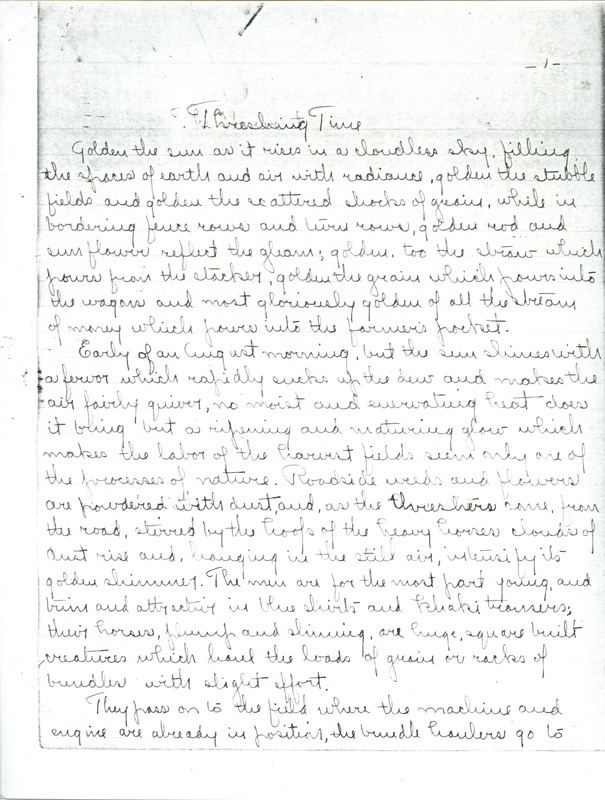 -1-
Threshing Time
Golden the sun as it rises in a cloudless sky, filling
the spaces of earth and air with radiance, golden the stubble
fields and golden the scattered shocks of grain, while in
bordering fence rows and turn rows, golden rod and
sunflower reflect the gleam; golden, too the straw which
pours from the stacker, golden the grain which pours into
the wagons and most gloriously golden of all the stream
of money which pours into the farmer's pocket.
Early of an August morning, but the sun shines with
a fervor which rapidly sucks up the dew and makes the
air fairly quiver, no moist and enervating heat does
it bring but a ripening and maturing glow which
makes the labor of the harvest fields seem only one of
the processes of nature. Roadside weeds and flowers
are powdered with dust, and, as the threshers come, from
the road, stirred by the hoofs of the heavy horses clouds of
dust rise and, hanging in the still air, intensify its
golden shimmer. The men are for the most part young, and
trim and attractive in blue shirts and khaki trousers;
their horses, plump and shining, are huge, square built
creatures which haul the loads of grain or racks of
bundles with slight effort.
They pass on to the field where the machine and
engine are already in position, the bundle haulers go to